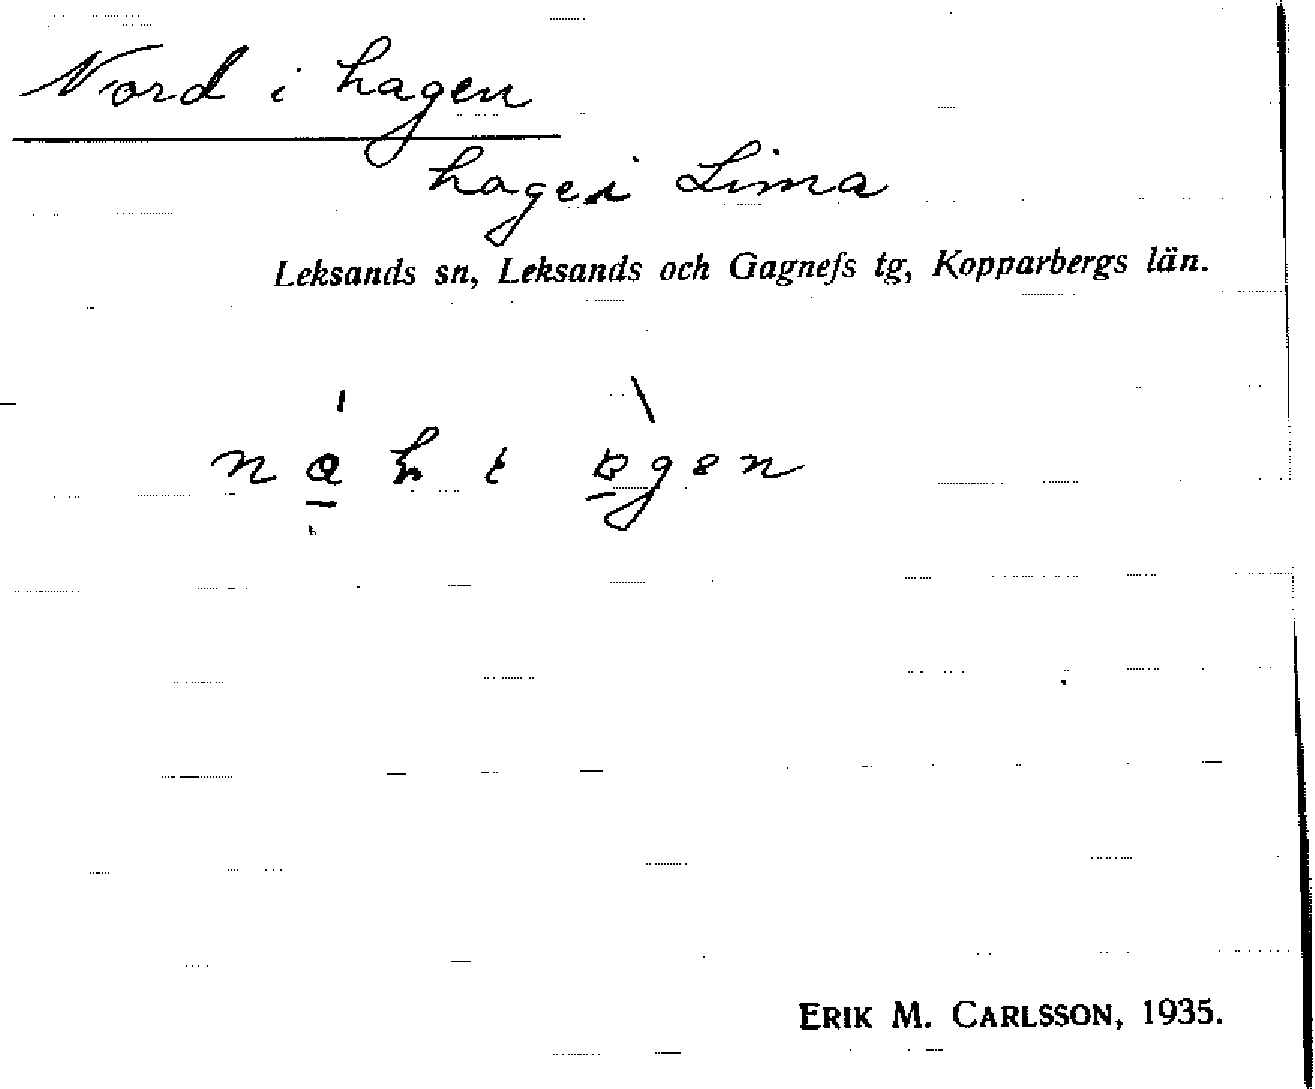 Nord i hagen
hage i Lima
Leksands sn, Leksands och Gagnefs tg, Kopparbergs län.
ERIK M. CARLSSON, 1935.